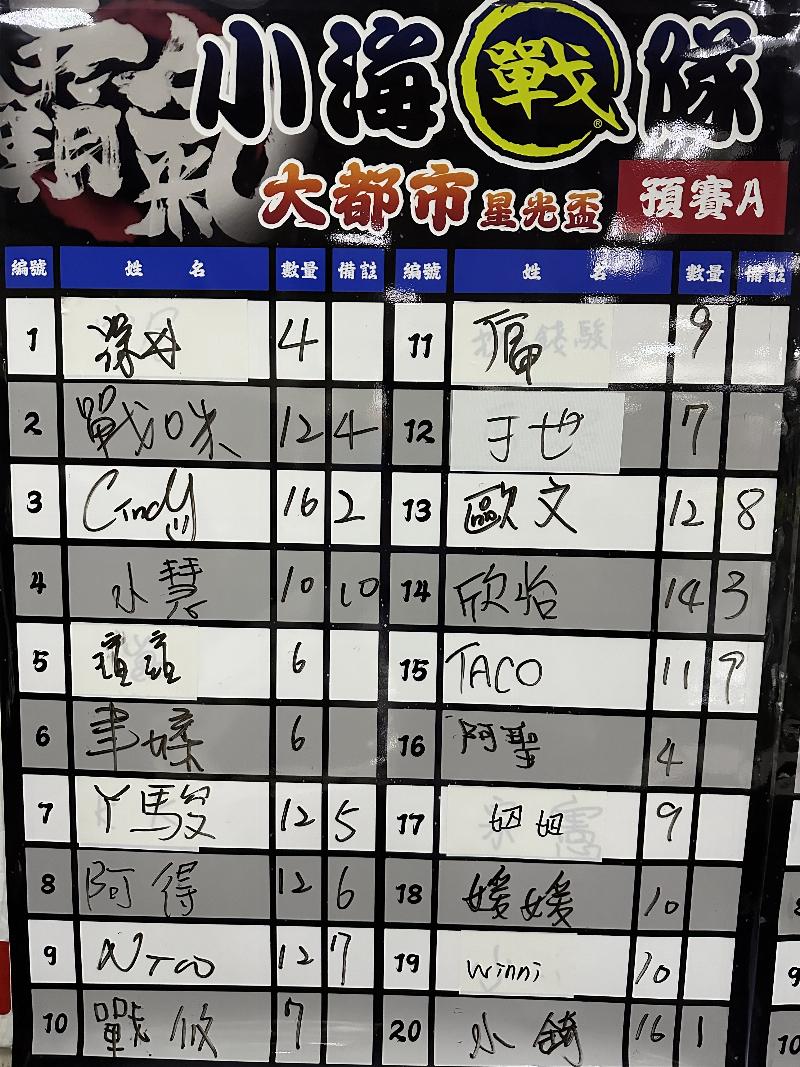 霸氣
小海戰隊®
大都市星光盃 預賽A
編號 姓名 數量 備註 編號 姓名 數量 備註
1 4 11 9
2 戰咪 12 4 12 于也 7
3 Cindy 16 2 13 歐文 12 8
4 小慧 10 10 14 欣怡 14 3
5 6 15 TACO 11 9
6 6 16 阿聖 4
7 丫駿 12 5 17 妞妞 9
8 阿得 12 6 18 媛媛 10
9 NTCO 12 7 19 winni 10
10 戰攸 7 20 小錡 16 1